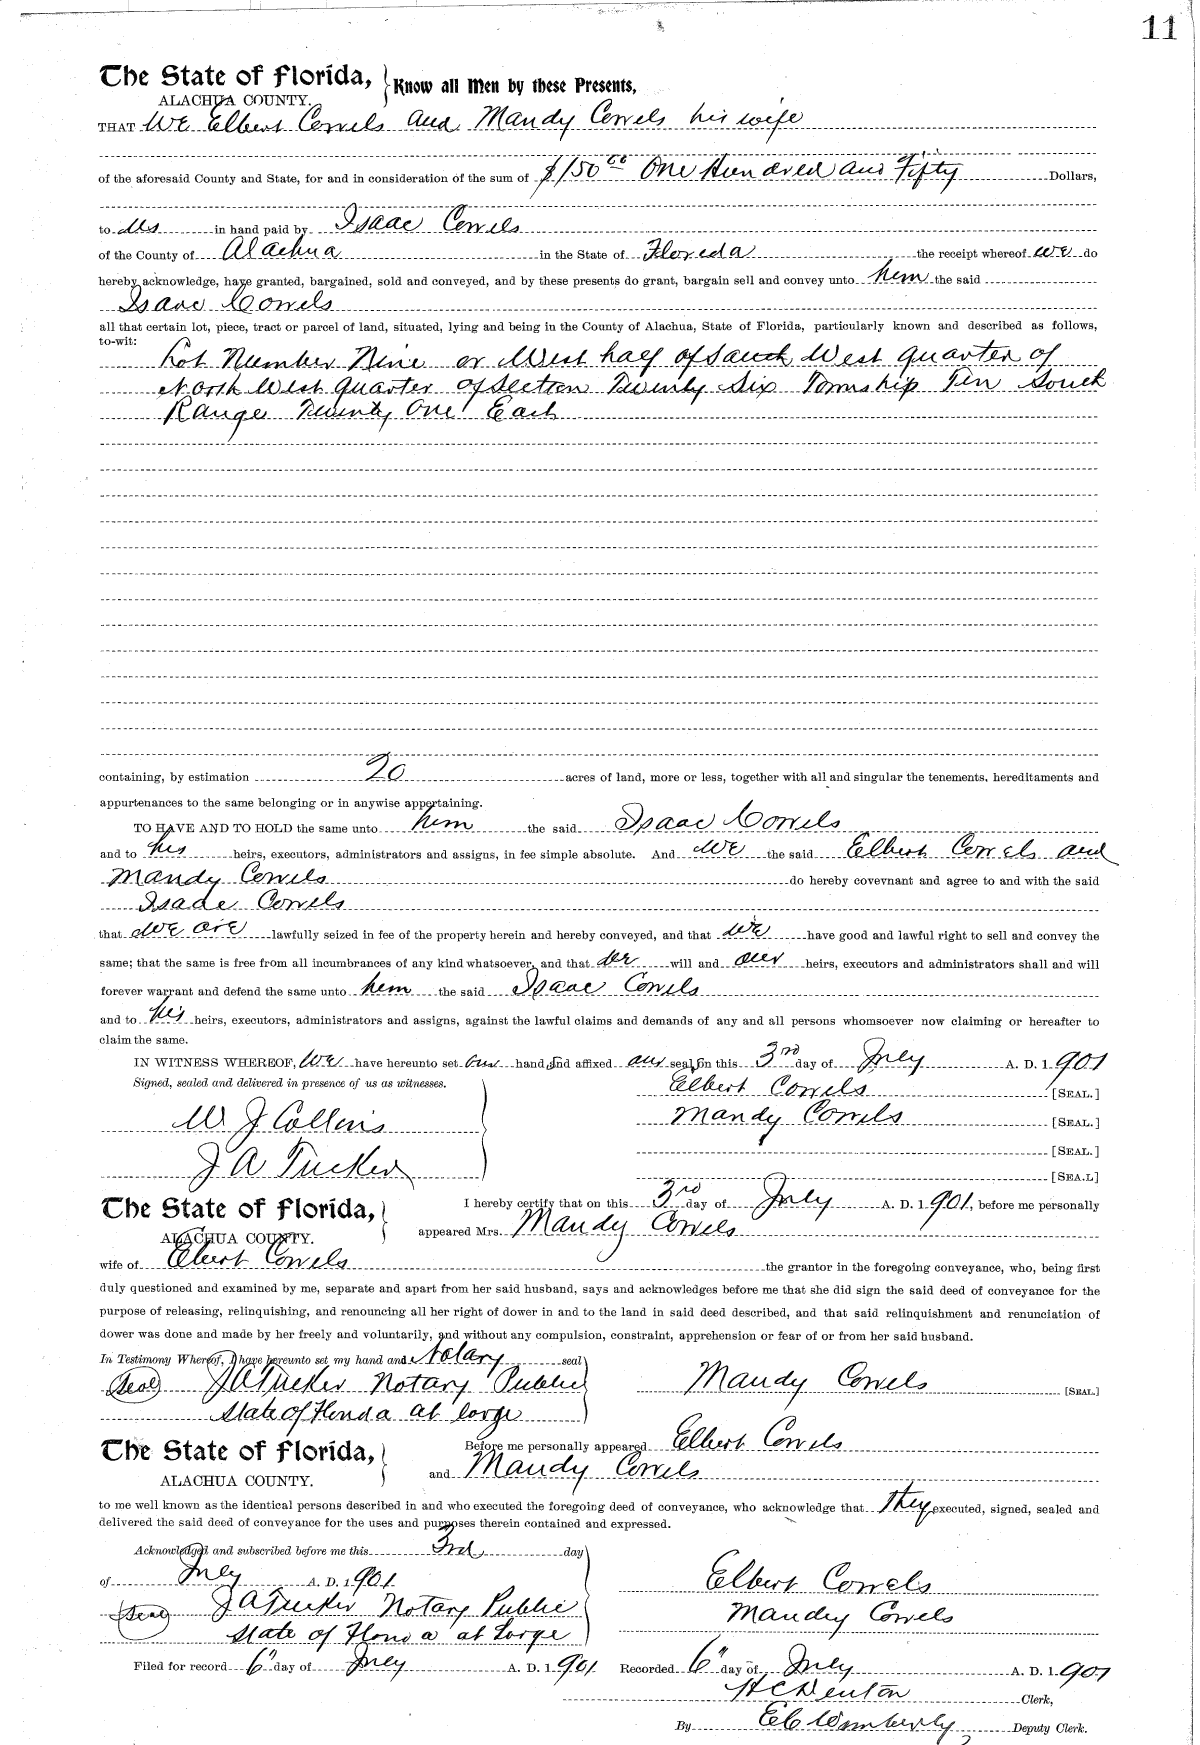 11
The State of Florida, } Know all Men by these Presents,
ALACHUA COUNTY.
THAT We Elbert Cowels and Mandy Cowels his wife
of the aforesaid County and State, for and in consideration of the sum of $150 00 One Hundred and Fifty Dollars,
to us in hand paid by Isaac Cowels
of the County of Alachua in the State of Floreda the receipt whereof we do
hereby acknowledge, have granted, bargained, sold and conveyed, and by these presents do grant, bargain sell and convey unto him the said
Isaac Cowels
all that certain lot, piece, tract or parcel of land, situated, lying and being in the County of Alachua, State of Florida, particularly known and described as follows,
to-wit:
Lot Number Nine or West half of South West quarter of
North West quarter of Section Twenty Six Township Ten South
Range Twenty One East
containing, by estimation 20 acres of land, more or less, together with all and singular the tenements, hereditaments and
appurtenances to the same belonging or in anywise appertaining.
TO HAVE AND TO HOLD the same unto him the said Isaac Cowels
and to his heirs, executors, administrators and assigns, in fee simple absolute. And We the said Elbert Cowels and
Mandy Cowels do hereby covevnant and agree to and with the said
Isaac Cowels
that we are lawfully seized in fee of the property herein and hereby conveyed, and that we have good and lawful right to sell and convey the
same; that the same is free from all incumbrances of any kind whatsoever, and that will and our heirs, executors and administrators shall and will
forever warrant and defend the same unto him the said Isaac Cowels
and to his heirs, executors, administrators and assigns, against the lawful claims and demands of any and all persons whomsoever now claiming or hereafter to
claim the same.
IN WITNESS WHEREOF, We have hereunto set our hand and affixed our seal on this 3rd day of July A. D. 1901
Signed, sealed and delivered in presence of us as witnesses.
Elbert Cowels [SEAL.]
W. J Collins
Mandy Cowels [SEAL.]
[SEAL.]
J A Tucker
[SEA.L]
The State of Florida, } I hereby certify that on this 3rd day of July A. D. 1901, before me personally
ALACHUA COUNTY. appeared Mrs. Mandy Cowels
wife of Elbert Cowels the grantor in the foregoing conveyance, who, being first
duly questioned and examined by me, separate and apart from her said husband, says and acknowledges before me that she did sign the said deed of conveyance for the
purpose of releasing, relinquishing, and renouncing all her right of dower in and to the land in said deed described, and that said relinquishment and renunciation of
dower was done and made by her freely and voluntarily, and without any compulsion, constraint, apprehension or fear of or from her said husband.
In Testimony Whereof, I have hereunto set my hand and Notary seal
(Seal) J A Tucker Notary Public Mandy Cowels [SEAL.]
State of Florida at large
The State of Florida, } Before me personally appeared Elbert Cowels
ALACHUA COUNTY. and Mandy Cowels
to me well known as the identical persons described in and who executed the foregoing deed of conveyance, who acknowledge that they executed, signed, sealed and
delivered the said deed of conveyance for the uses and purposes therein contained and expressed.
Acknowledged and subscribed before me this 3rd day
of July A. D. 1901 Elbert Cowels
(Seal) J A Tucker Notary Public Mandy Cowels
State of Florida at Large
Filed for record 6" day of July A. D. 1901 Recorded 6" day of July A. D. 1901
H C Denton Clerk,
By Deputy Clerk.